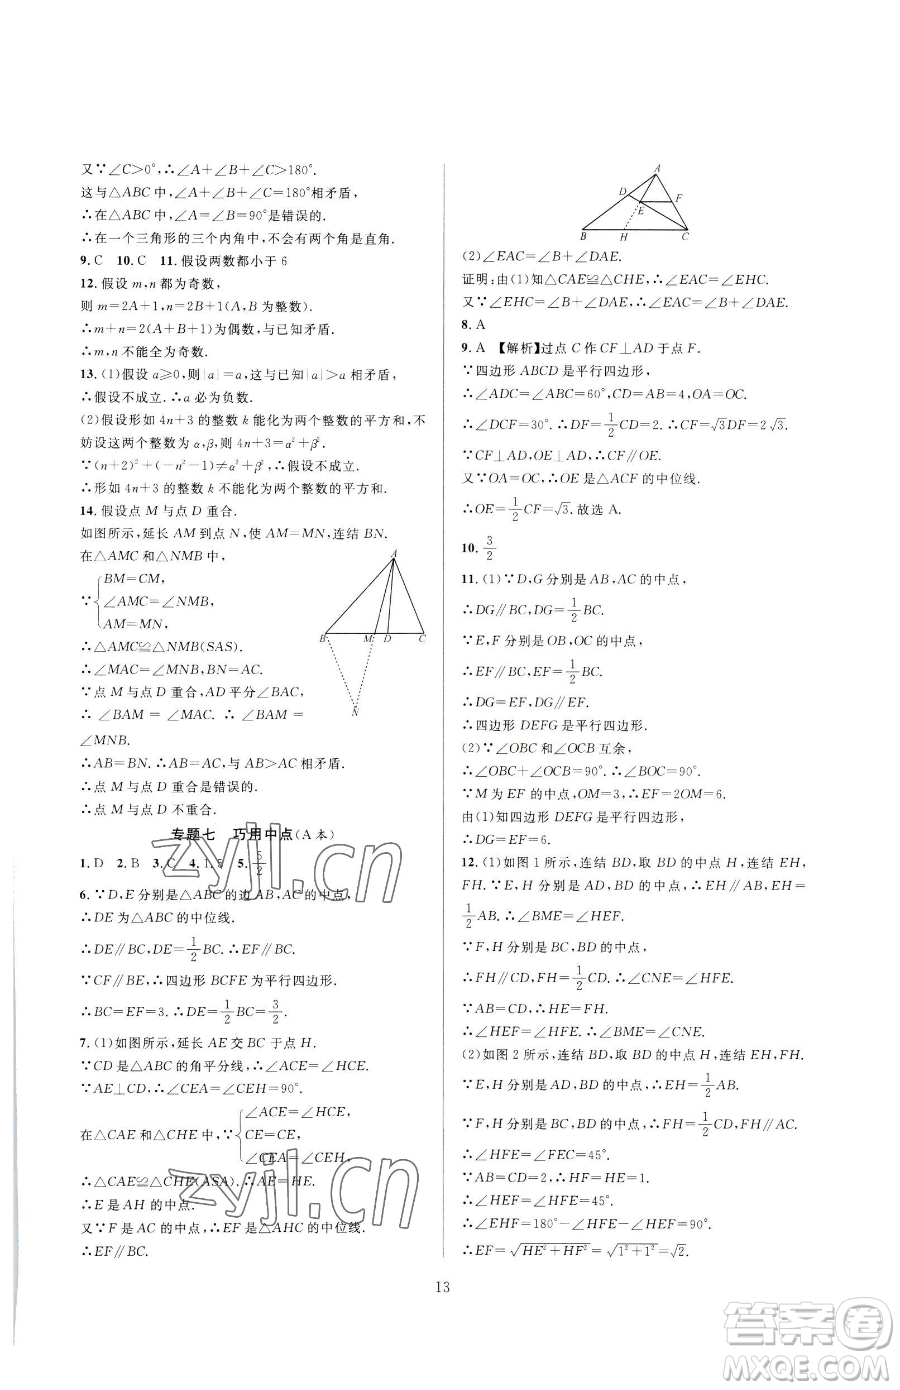 又∵∠C>0°,∴∠A+∠B+∠C>180°.
这与△ABC中,∠A+∠B+∠C=180°相矛盾,
∴在△ABC中,∠A=∠B=90°是错误的.
∴在一个三角形的三个内角中,不会有两个角是直角.
9. C 10. C 11. 假设两数都小于6
12. 假设m,n都为奇数,
则m=2A+1,n=2B+1(A,B为整数),
∴m+n=2(A+B+1)为偶数,与已知矛盾.
∴m,n不能全为奇数.
13. (1)假设a≥0,则|a|=a,这与已知|a|>a相矛盾.
∴假设不成立.∴a必为负数.
(2)假设形如4n+3的整数k能化为两个整数的平方和,不
妨设这两个整数为α,β,则4n+3=α²+β².
∵(n+2)²+(-n²-1)≠α²+β²,∴假设不成立.
∴形如4n+3的整数k不能化为两个整数的平方和.
14. 假设点M与点D重合.
如图所示,延长AM到点N,使AM=MN,连结BN.
在△AMC和△NMB中,
A
BM=CM,
∵{∠AMC=∠NMB,
AM=MN,
B M D C
∴△AMC≌△NMB(SAS).
∴∠MAC=∠MNB,BN=AC.
∵点M与点D重合,AD平分∠BAC,
N
∴∠BAM=∠MAC.∴∠BAM=
∠MNB.
∴AB=BN.∴AB=AC,与AB>AC相矛盾.
∴点M与点D重合是错误的.
∴点M与点D不重合.
专题七 巧用中点(A本)
1. D 2. B 3. C 4. 1.5 5. 5/2
6. ∵D,E分别是△ABC的边AB,AC的中点,
∴DE为△ABC的中位线.
∴DE∥BC,DE=1/2BC.∴EF∥BC.
∵CF∥BE,∴四边形BCFE为平行四边形.
∴BC=EF=3.∴DE=1/2BC=3/2.
7. (1)如图所示,延长AE交BC于点H.
∵CD是△ABC的角平分线,∴∠ACE=∠HCE.
∵AE⊥CD,∴∠CEA=∠CEH=90°.
∠ACE=∠HCE,
在△CAE和△CHE中,∵{CE=CE,
∠CEA=∠CEH,
∴△CAE≌△CHE(ASA).∴AE=HE.
∴E是AH的中点.
又∵F是AC的中点,∴EF是△AHC的中位线.
∴EF∥BC.
A
D
E
F
B H C
(2)∠EAC=∠B+∠DAE.
证明:由(1)知△CAE≌△CHE,∴∠EAC=∠EHC.
又∵∠EHC=∠B+∠DAE,∴∠EAC=∠B+∠DAE.
8. A
9. A 【解析】过点C作CF⊥AD于点F.
∵四边形ABCD是平行四边形,
∴∠ADC=∠ABC=60°,CD=AB=4,OA=OC.
∴∠DCF=30°.∴DF=1/2CD=2.∴CF=√3DF=2√3.
∵CF⊥AD,OE⊥AD,∴OE∥CF.
又∵OA=OC,∴OE是△ACF的中位线.
∴OE=1/2CF=√3.故选A.
10. 3/2
11. (1)∵D,G分别是AB,AC的中点,
∴DG∥BC,DG=1/2BC.
∵E,F分别是OB,OC的中点,
∴EF∥BC,EF=1/2BC.
∴DG=EF,DG∥EF.
∴四边形DEFG是平行四边形.
(2)∵∠OBC和∠OCB互余,
∴∠OBC+∠OCB=90°.∴∠BOC=90°.
∵M为EF的中点,OM=3,∴EF=2OM=6.
由(1)知四边形DEFG是平行四边形,
∴DG=EF=6.
12. (1)如图1所示,连结BD,取BD的中点H,连结EH,
FH.∵E,H分别是AD,BD的中点,∴EH∥AB,EH=
1/2AB.∴∠BME=∠HEF.
∵F,H分别是BC,BD的中点,
∴FH∥CD,FH=1/2CD.∴∠CNE=∠HFE.
∵AB=CD,∴HE=FH.
∴∠HEF=∠HFE.∴∠BME=∠CNE.
(2)如图2所示,连结BD,取BD的中点H,连结EH,FH.
∵E,H分别是AD,BD的中点,∴EH=1/2AB.
∵F,H分别是BC,BD的中点,∴FH=1/2CD,FH∥AC.
∴∠HFE=∠FEC=45°.
∵AB=CD=2,∴HF=HE=1.
∴∠HEF=∠HFE=45°.
∴∠EHF=180°-∠HFE-∠HEF=90°.
∴EF=√(HE²+HF²)=√(1²+1²)=√2.
13
zyjl.cn
zyjl.cn
答案圈
MXQE.COM